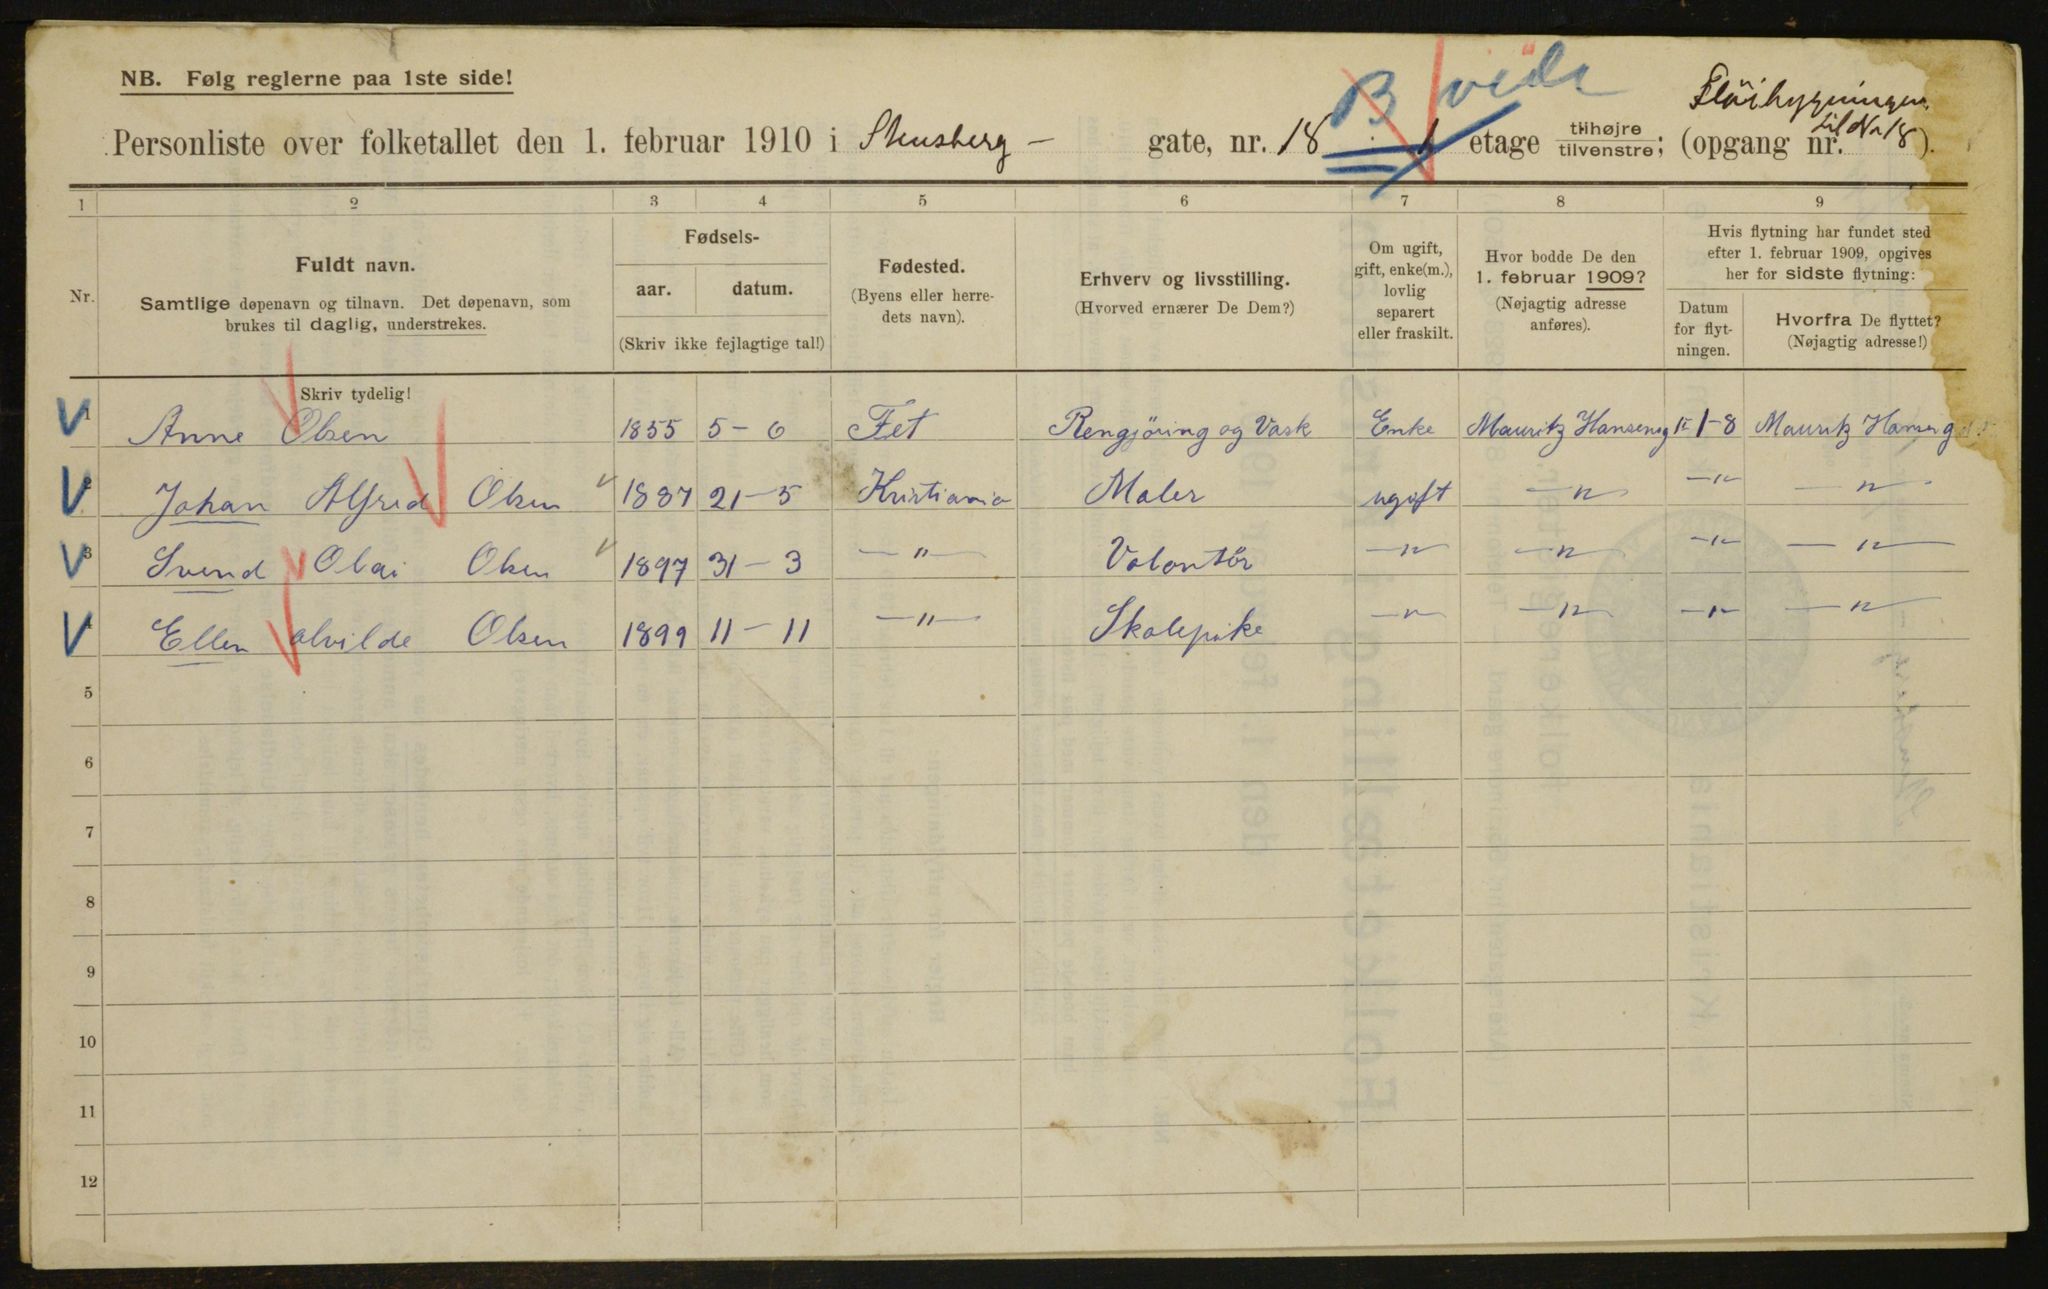 NB. Følg reglerne paa 1ste side!
B
Fløibygningen
til Nr 18
Personliste over folketallet den 1. februar 1910 i Stensberg - gate, nr. 18 1 etage tilhøjre tilvenstre; (opgang nr. ).
1 2 3 4 5 6 7 8 9
Nr.
Fuldt navn.
Samtlige døpenavn og tilnavn. Det døpenavn, som
brukes til daglig, understrekes.
Skriv tydelig!
Fødsels-
aar. datum.
(Skriv ikke fejlagtige tal!)
Fødested.
(Byens eller herre-
dets navn).
Erhverv og livsstilling.
(Hvorved ernærer De Dem?)
Om ugift,
gift, enke(m.),
lovlig
separert
eller fraskilt.
Hvor bodde De den
1. februar 1909?
(Nøjagtig adresse
anføres).
Hvis flytning har fundet sted
efter 1. februar 1909, opgives
her for sidste flytning:
Datum
for flyt-
ningen.
Hvorfra De flyttet?
(Nøjagtig adresse!)
1 Anne Olsen 1855 5-6 Fet Rengjöring og Vask Enke Mauritz Hanseng 1-8 Mauritz Hanseng
2 Johan Alfred Olsen 1887 21-5 Kristiania Maler ugift -"- -"- -"-
3 Svend Olai Olsen 1897 31-3 -"- Volontör -"- -"- -"- -"-
4 Ellen alvilde Olsen 1899 11-11 -"- Skolepike -"- -"- -"- -"-
5
6
7
8
9
10
11
12